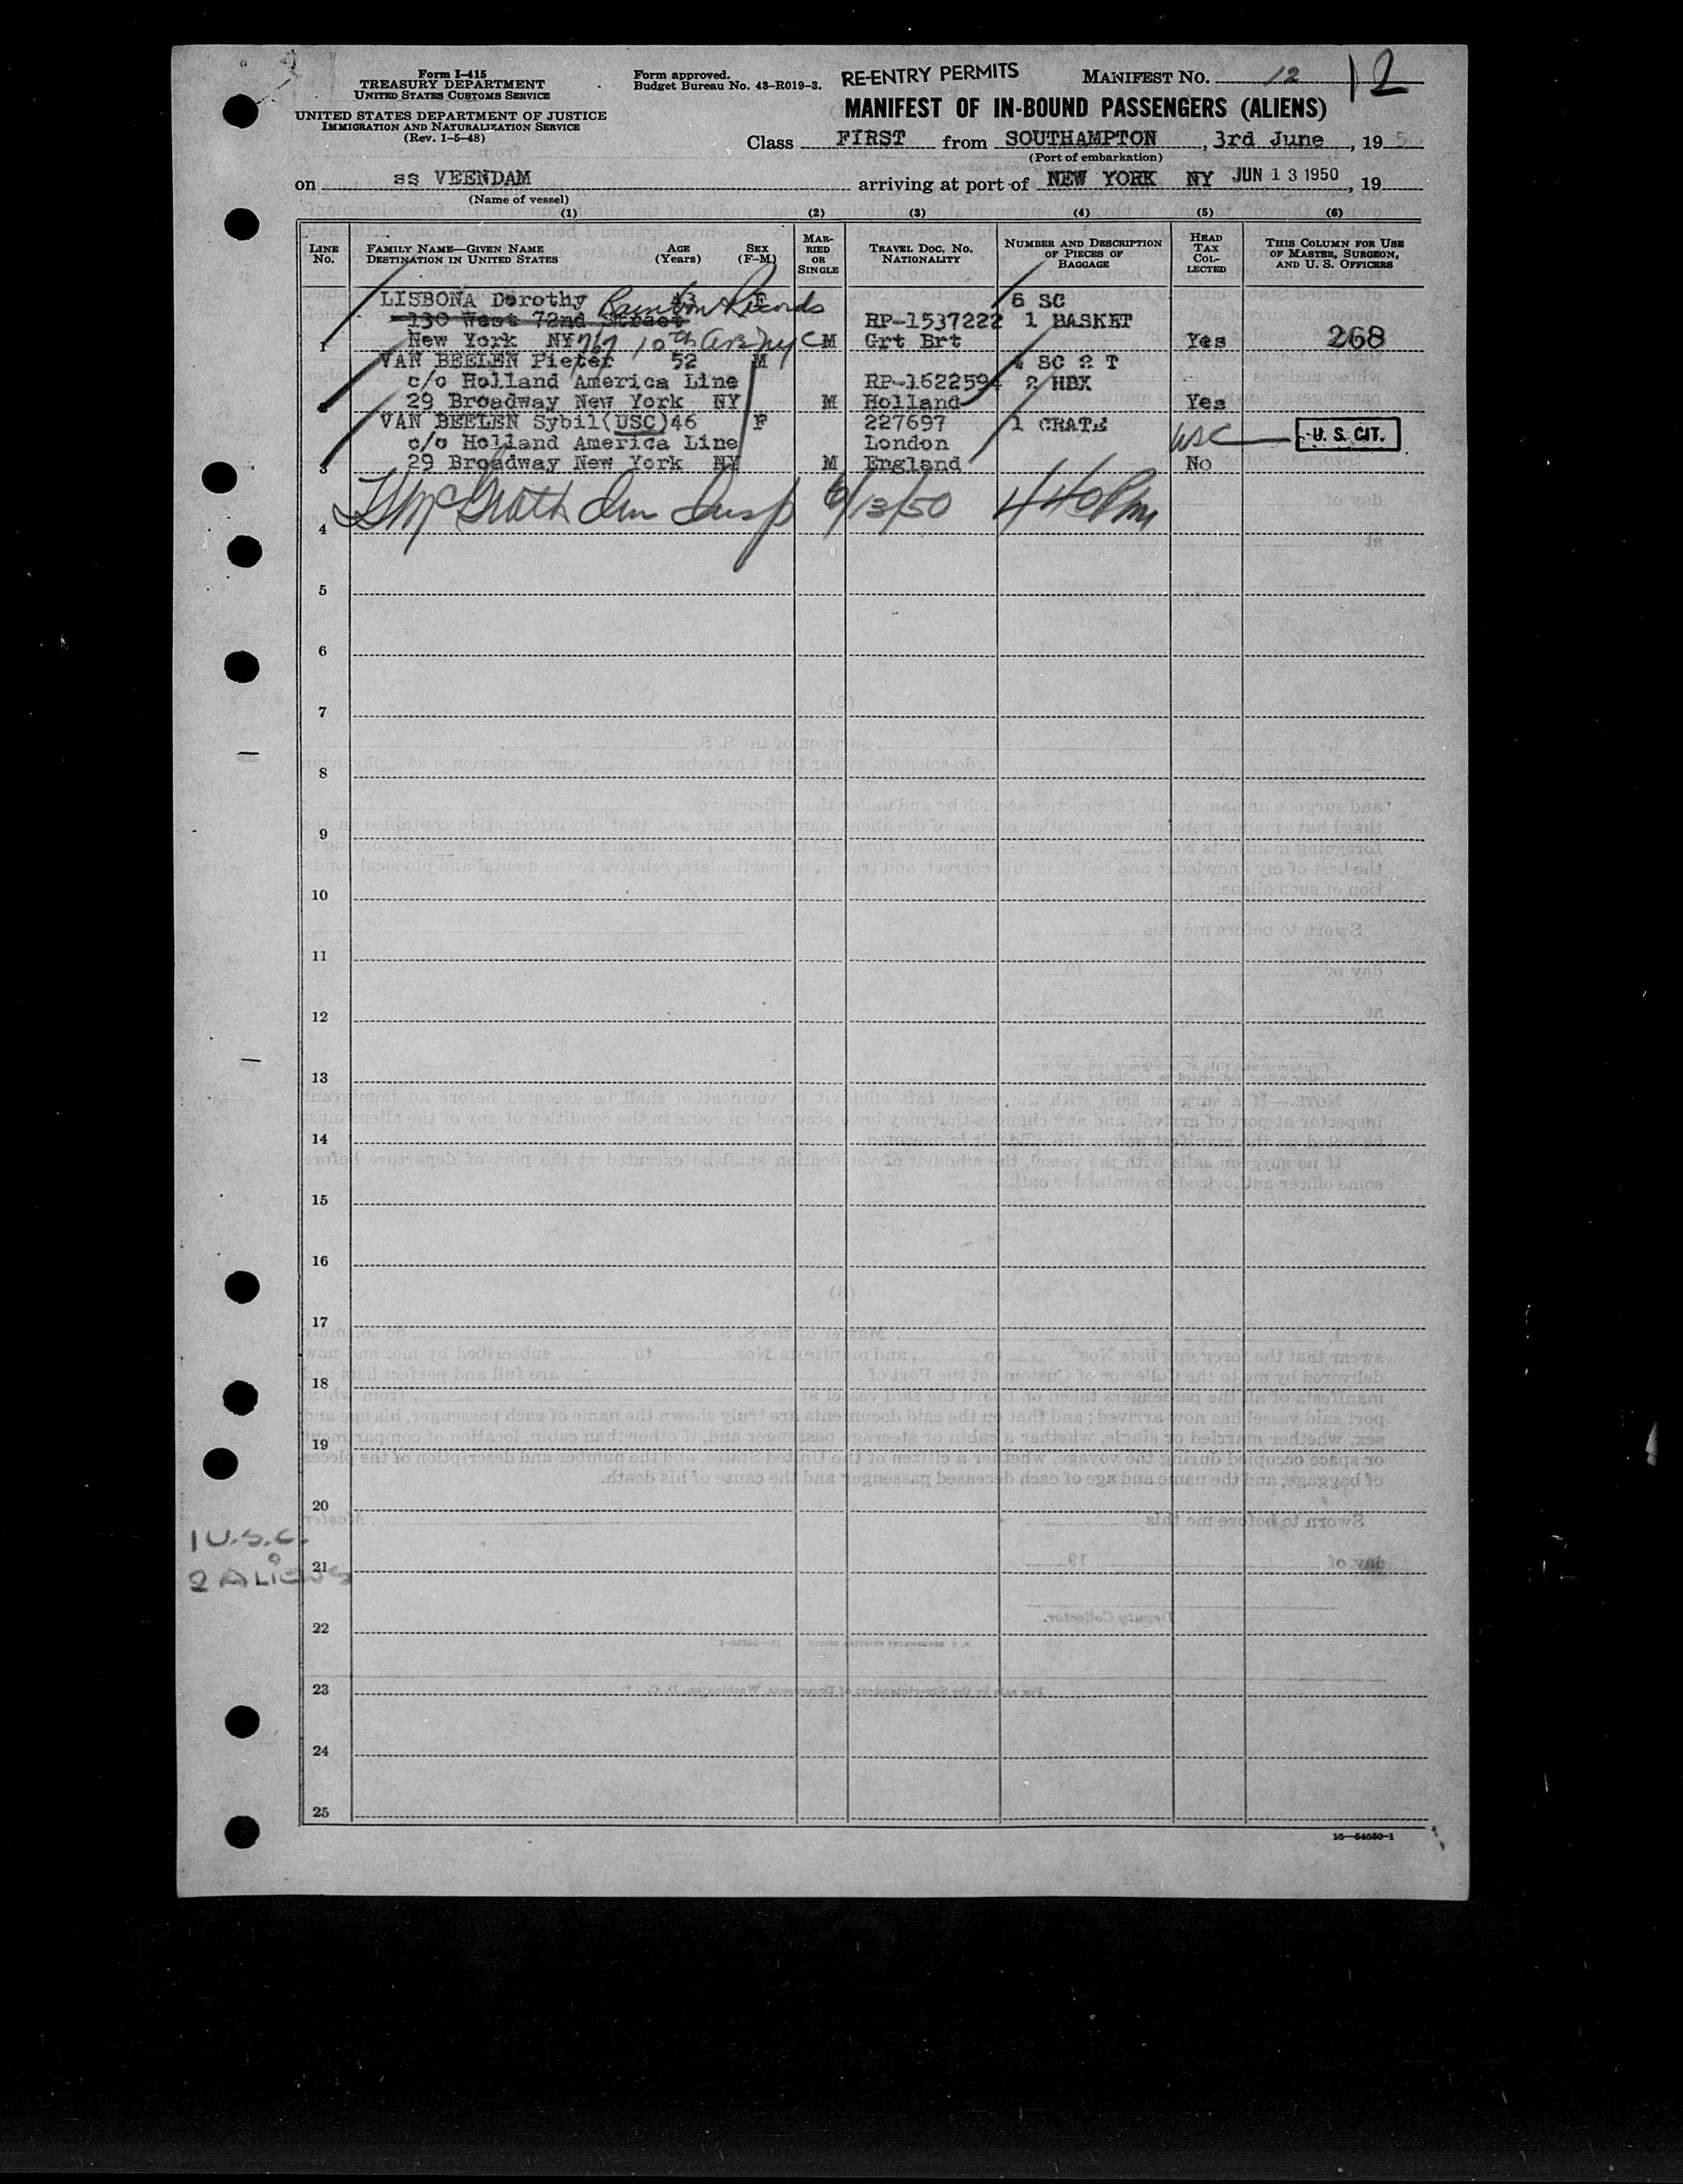 Form I-415
TREASURY DEPARTMENT
UNITED STATES CUSTOMS SERVICE
UNITED STATES DEPARTMENT OF JUSTICE
IMMIGRATION AND NATURALIZATION SERVICE
(Rev. 1-5-48)
Form approved.
Budget Bureau No. 43-R019-3.
RE-ENTRY PERMITS
MANIFEST NO. 12
12
MANIFEST OF IN-BOUND PASSENGERS (ALIENS)
Class FIRST from SOUTHAMPTON, 3rd June, 195
(Port of embarkation)
on ss VEENDAM arriving at port of NEW YORK NY JUN 13 1950, 19
(Name of vessel)
(1) (2) (3) (4) (5) (6)
LINE No.
FAMILY NAME—GIVEN NAME
DESTINATION IN UNITED STATES
AGE (Years)
SEX (F-M)
MARRIED OR SINGLE
TRAVEL DOC. NO. NATIONALITY
NUMBER AND DESCRIPTION OF PIECES OF BAGGAGE
HEAD TAX COLLECTED
THIS COLUMN FOR USE OF MASTER, SURGEON, AND U. S. OFFICERS
LISBONA Dorothy 43 F 6 SC
Records
130 West 72nd Street RP-1537222 1 BASKET
1 New York NY 767 10th Ave NYC M Grt Brt Yes 268
VAN BEELEN Pieter 52 M 4 SC 2 T
c/o Holland America Line RP-1622594 2 HBX
2 29 Broadway New York NY M Holland Yes
VAN BEELEN Sybil(USC)46 F 227697 1 CRATE
c/o Holland America Line London USC U. S. CIT.
3 29 Broadway New York NY M England No
4 McGrath Imm Insp 6/13/50 440 Pm
5
6
7
8
9
10
11
12
13
14
15
16
17
18
19
20
1 U.S.C.
21
2 ALIENS
22
23
24
25
16—54650-1